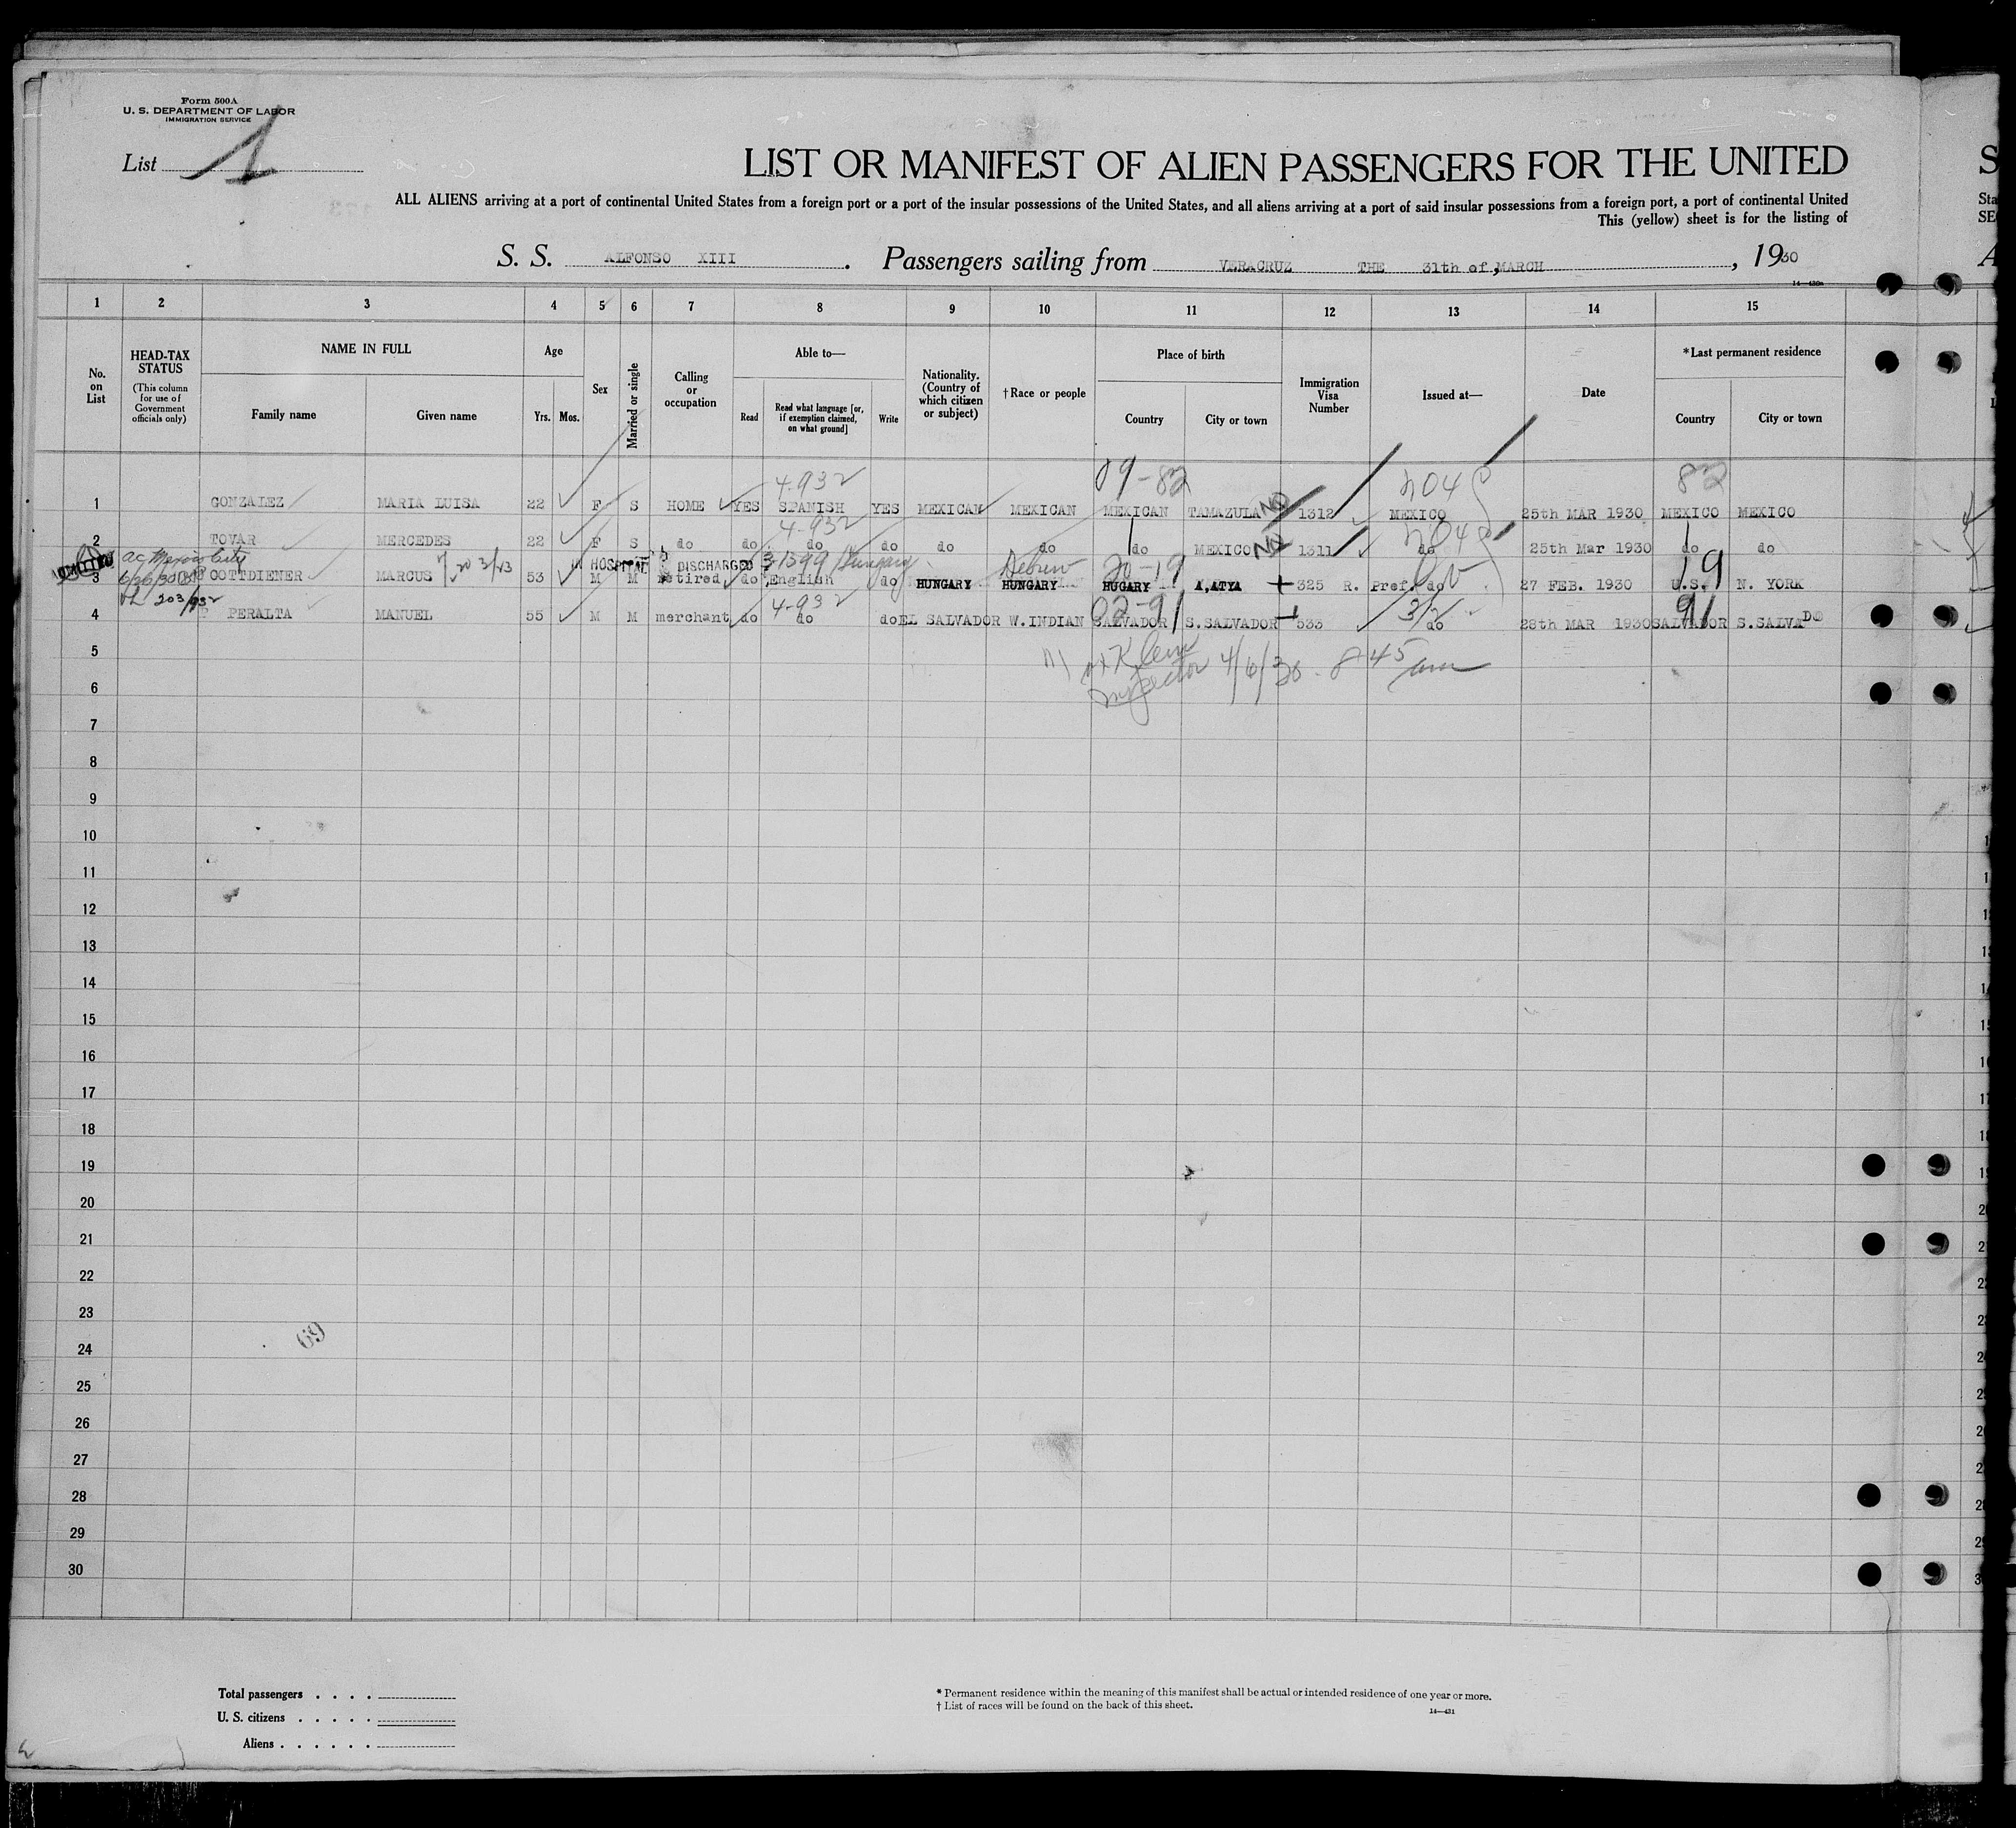 Form 500A
U. S. DEPARTMENT OF LABOR
IMMIGRATION SERVICE
List 1
LIST OR MANIFEST OF ALIEN PASSENGERS FOR THE UNITED
ALL ALIENS arriving at a port of continental United States from a foreign port or a port of the insular possessions of the United States, and all aliens arriving at a port of said insular possessions from a foreign port, a port of continental United
This (yellow) sheet is for the listing of
S. S. ALFONSO XIII. Passengers sailing from VERACRUZ THE 31th of, MARCH, 1930
14—430a
1 2 3 4 5 6 7 8 9 10 11 12 13 14 15
No. on List
HEAD-TAX STATUS
(This column for use of Government officials only)
NAME IN FULL
Family name Given name
Age
Yrs. Mos.
Sex
Married or single
Calling or occupation
Able to—
Read
Read what language [or, if exemption claimed, on what ground]
Write
Nationality. (Country of which citizen or subject)
† Race or people
Place of birth
Country City or town
Immigration Visa Number
Issued at—
Date
*Last permanent residence
Country City or town
4-932 09-82 204 82
1 GONZALEZ MARIA LUISA 22 F S HOME YES SPANISH YES MEXICAN MEXICAN MEXICAN TAMAZULA ND 1312 MEXICO 25th MAR 1930 MEXICO MEXICO
4-932 204
2 TOVAR MERCEDES 22 F S do do do do do do do MEXICO ND 1311 do 25th Mar 1930 do do
ac Mexico City
IN HOSPITAL DISCHARGED 31399 Hungary Hebrew 20-19 19
3 6/26/30 GOTTDIENER MARCUS 53 M M retired do English do HUNGARY HUNGARY HUGARY A,ATYA 325 R. Pref. do 27 FEB. 1930 U.S. N. YORK
203/932 4-932 02-91 3/2 91
4 PERALTA MANUEL 55 M M merchant do do do EL SALVADOR W.INDIAN SALVADOR S.SALVADOR 533 do 28th MAR 1930 SALVADOR S.SALVADO
5 Klein
Inspector 4/6/30 8 45 am
6
7
8
9
10
11
12
13
14
15
16
17
18
19
20
21
22
23
69
24
25
26
27
28
29
30
Total passengers . . . .
U. S. citizens . . . . .
Aliens . . . . . .
* Permanent residence within the meaning of this manifest shall be actual or intended residence of one year or more.
† List of races will be found on the back of this sheet.
14—431